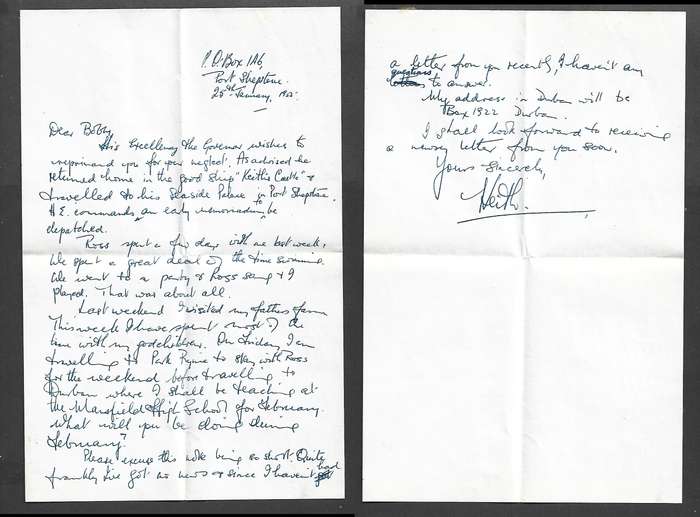 P.O. Box 126,
Port Shepstone.
28th January, 1955.
Dear Bobby,
His Excellency the Governor wishes to
reprimand you for your neglect. As advised he
returned home in the good ship "Keith's Castle" &
travelled to his Seaside Palace in Port Shepstone.
H.E. commands an early memoriadum to be
depatched.
Ross spent a few days with me last week.
We spent a great deal of the time swimming.
We went to a party & Ross sang & I
played. That was about all.
Last weekend I visited my father's farm
This week I have spent most of the
time with my godchildren. On Friday I am
travelling to Park Rynie to stay with Ross
for the weekend before travelling to
Durban where I shall be teaching at
the Mansfield High School for February.
What will you be doing during
February?
Please excuse this note being so short. Quite
frankly I've got no news & since I haven't had
a letter from you recently, I haven't any
questions to answer.
My address in Durban will be
Box 1922 Durban.
I shall look forward to receiving
a newsy letter from you soon.
Yours Sincerely,
Keith.